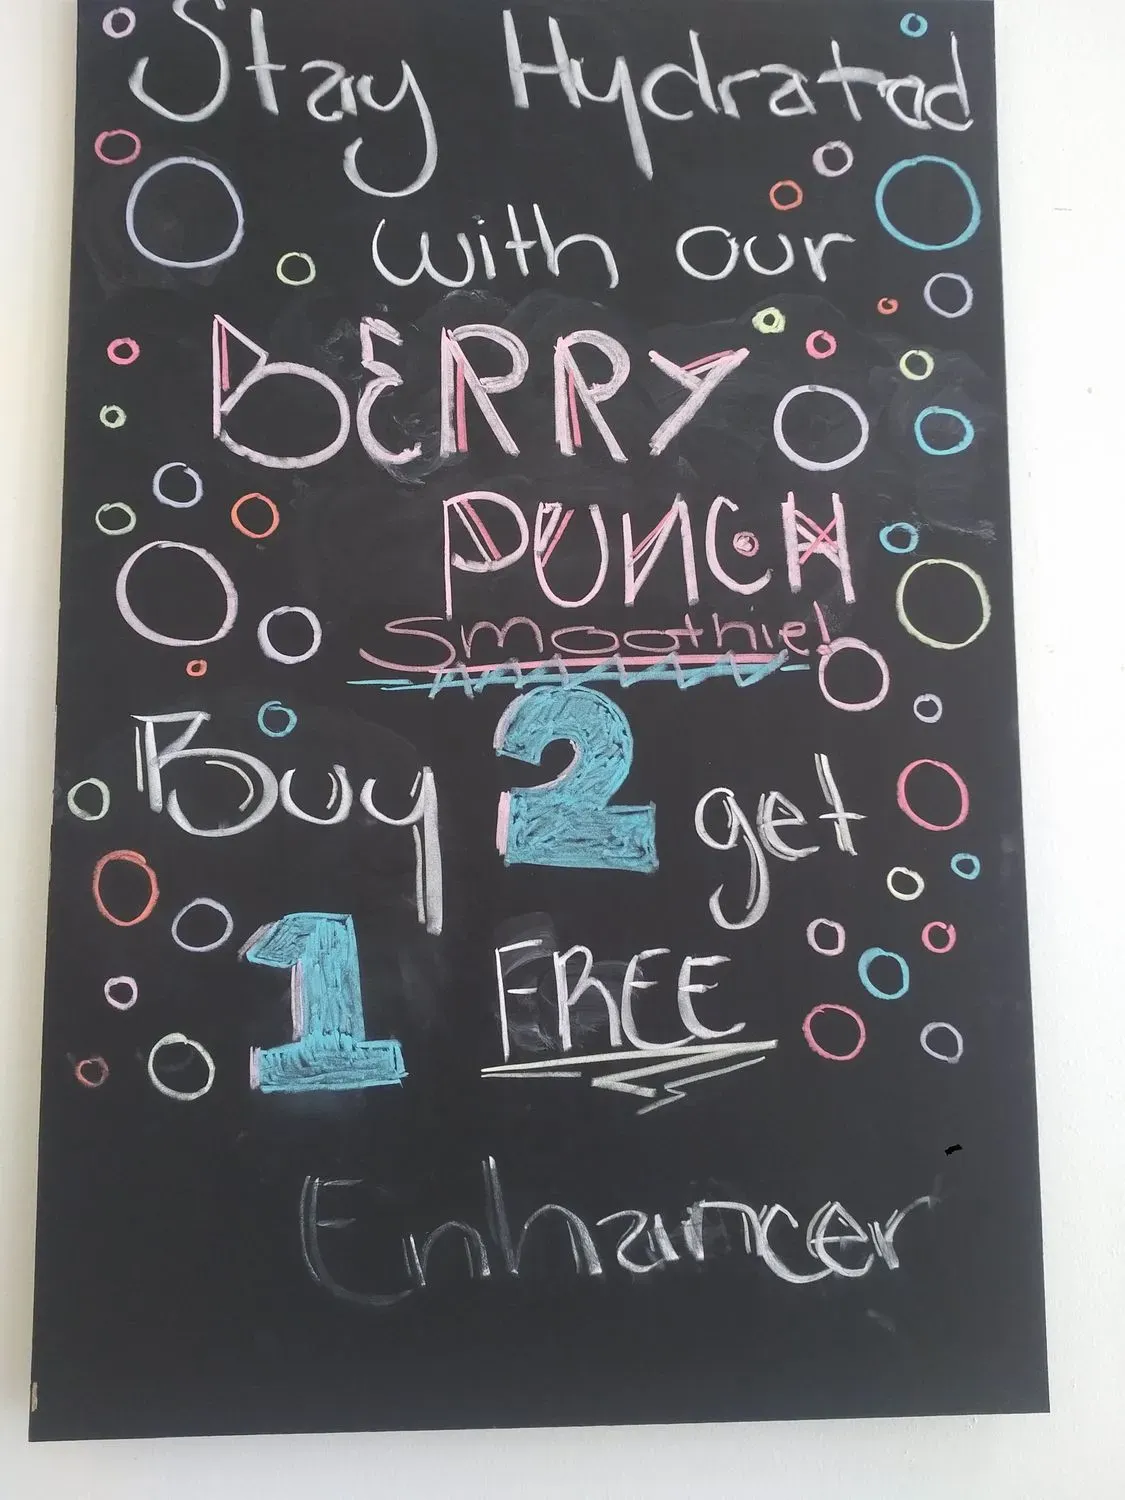 Stay Hydrated
with our
BERRY
PUNCH
Smoothie!
Buy 2 get
1 FREE
Enhancer